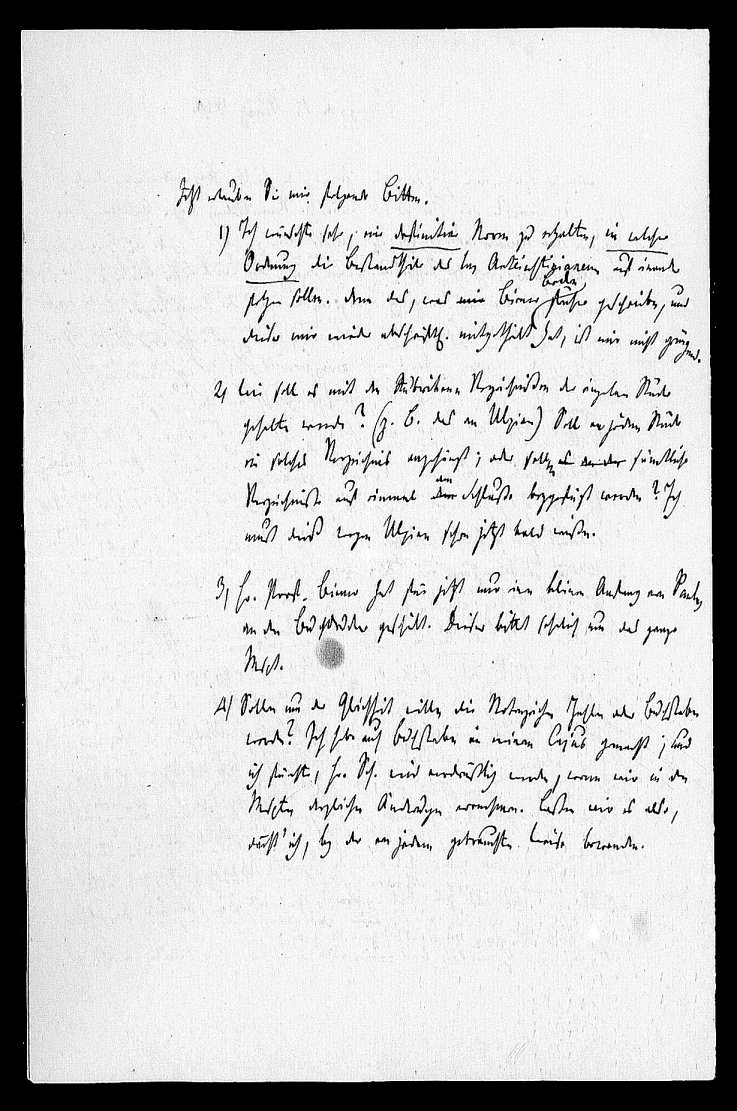 Jetzt erlauben Sie mir folgende Bitten.
1) Ich wünschte sehr, eine definitive Norm zu erhalten, in welcher
Ordnung die Bestandtheile des auf einander
folgen sollen. denn das, was mir Biener früher geschrieben, und
dieser mir wieder mitgetheilt hat, ist mir nicht genügend.
2) Wie soll es mit den Rubriken Verzeichnißen der einzelnen Stücke
gehalten werden? (z. B. des am Ulpian) Soll an jedem Stück
ein solches Verzeichnis angehängt, oder sollen sämtliche
Verzeichnisse auf einmal am Schluße beygefügt werden? Ich
muß dieß wegen Ulpian schon jetzt bald wissen.
3) Hr. Prof. Biener hat für jetzt nur einen kleinen Anfang von
an den geschickt. Dieser bittet um das ganze
Mscpt.
4) Sollen nun der Gleichheit willen die Notenzeichen Zahlen oder Buchstaben
werden? Ich habe auch Buchstaben in meinem Cajus gemacht; und
ich fürchte, Hr. Sch. wird verdrüßlich werden, wenn wir in den
Mscpten dergleichen Änderungen vornehmen. Laßen wir es also,
dächt' ich, bey der von jedem gebrauchten Weise bewenden.